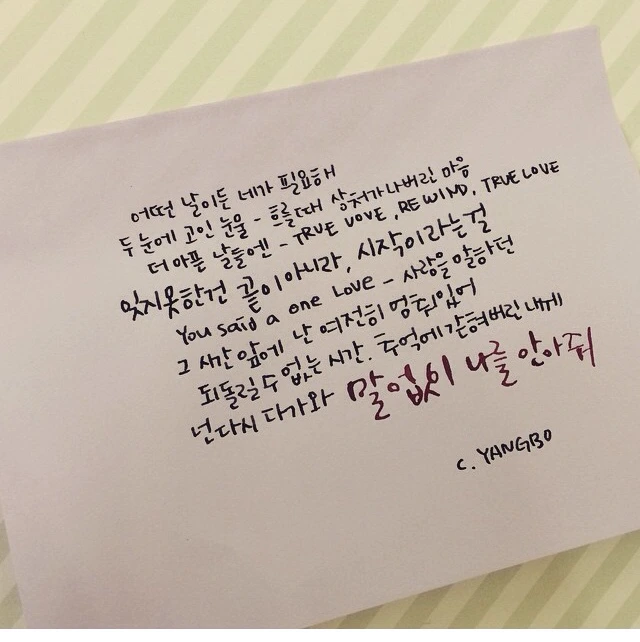 어떤 날이든 네가 필요해
두 눈에 고인 눈물 - 흐를때 상처가 나버린 마음
더 아픈 날들엔 - TRUE LOVE, REWIND, TRUE LOVE
잊지못한건 끝이 아니라, 시작이라는걸
You said a one Love - 사랑을 말하던
그 시간 앞에 난 여전히 멈춰있어
되돌릴 수 없는 시간. 추억에 갇혀버린 내게
넌 다시 다가와 말없이 나를 안아줘
C. YANGBO